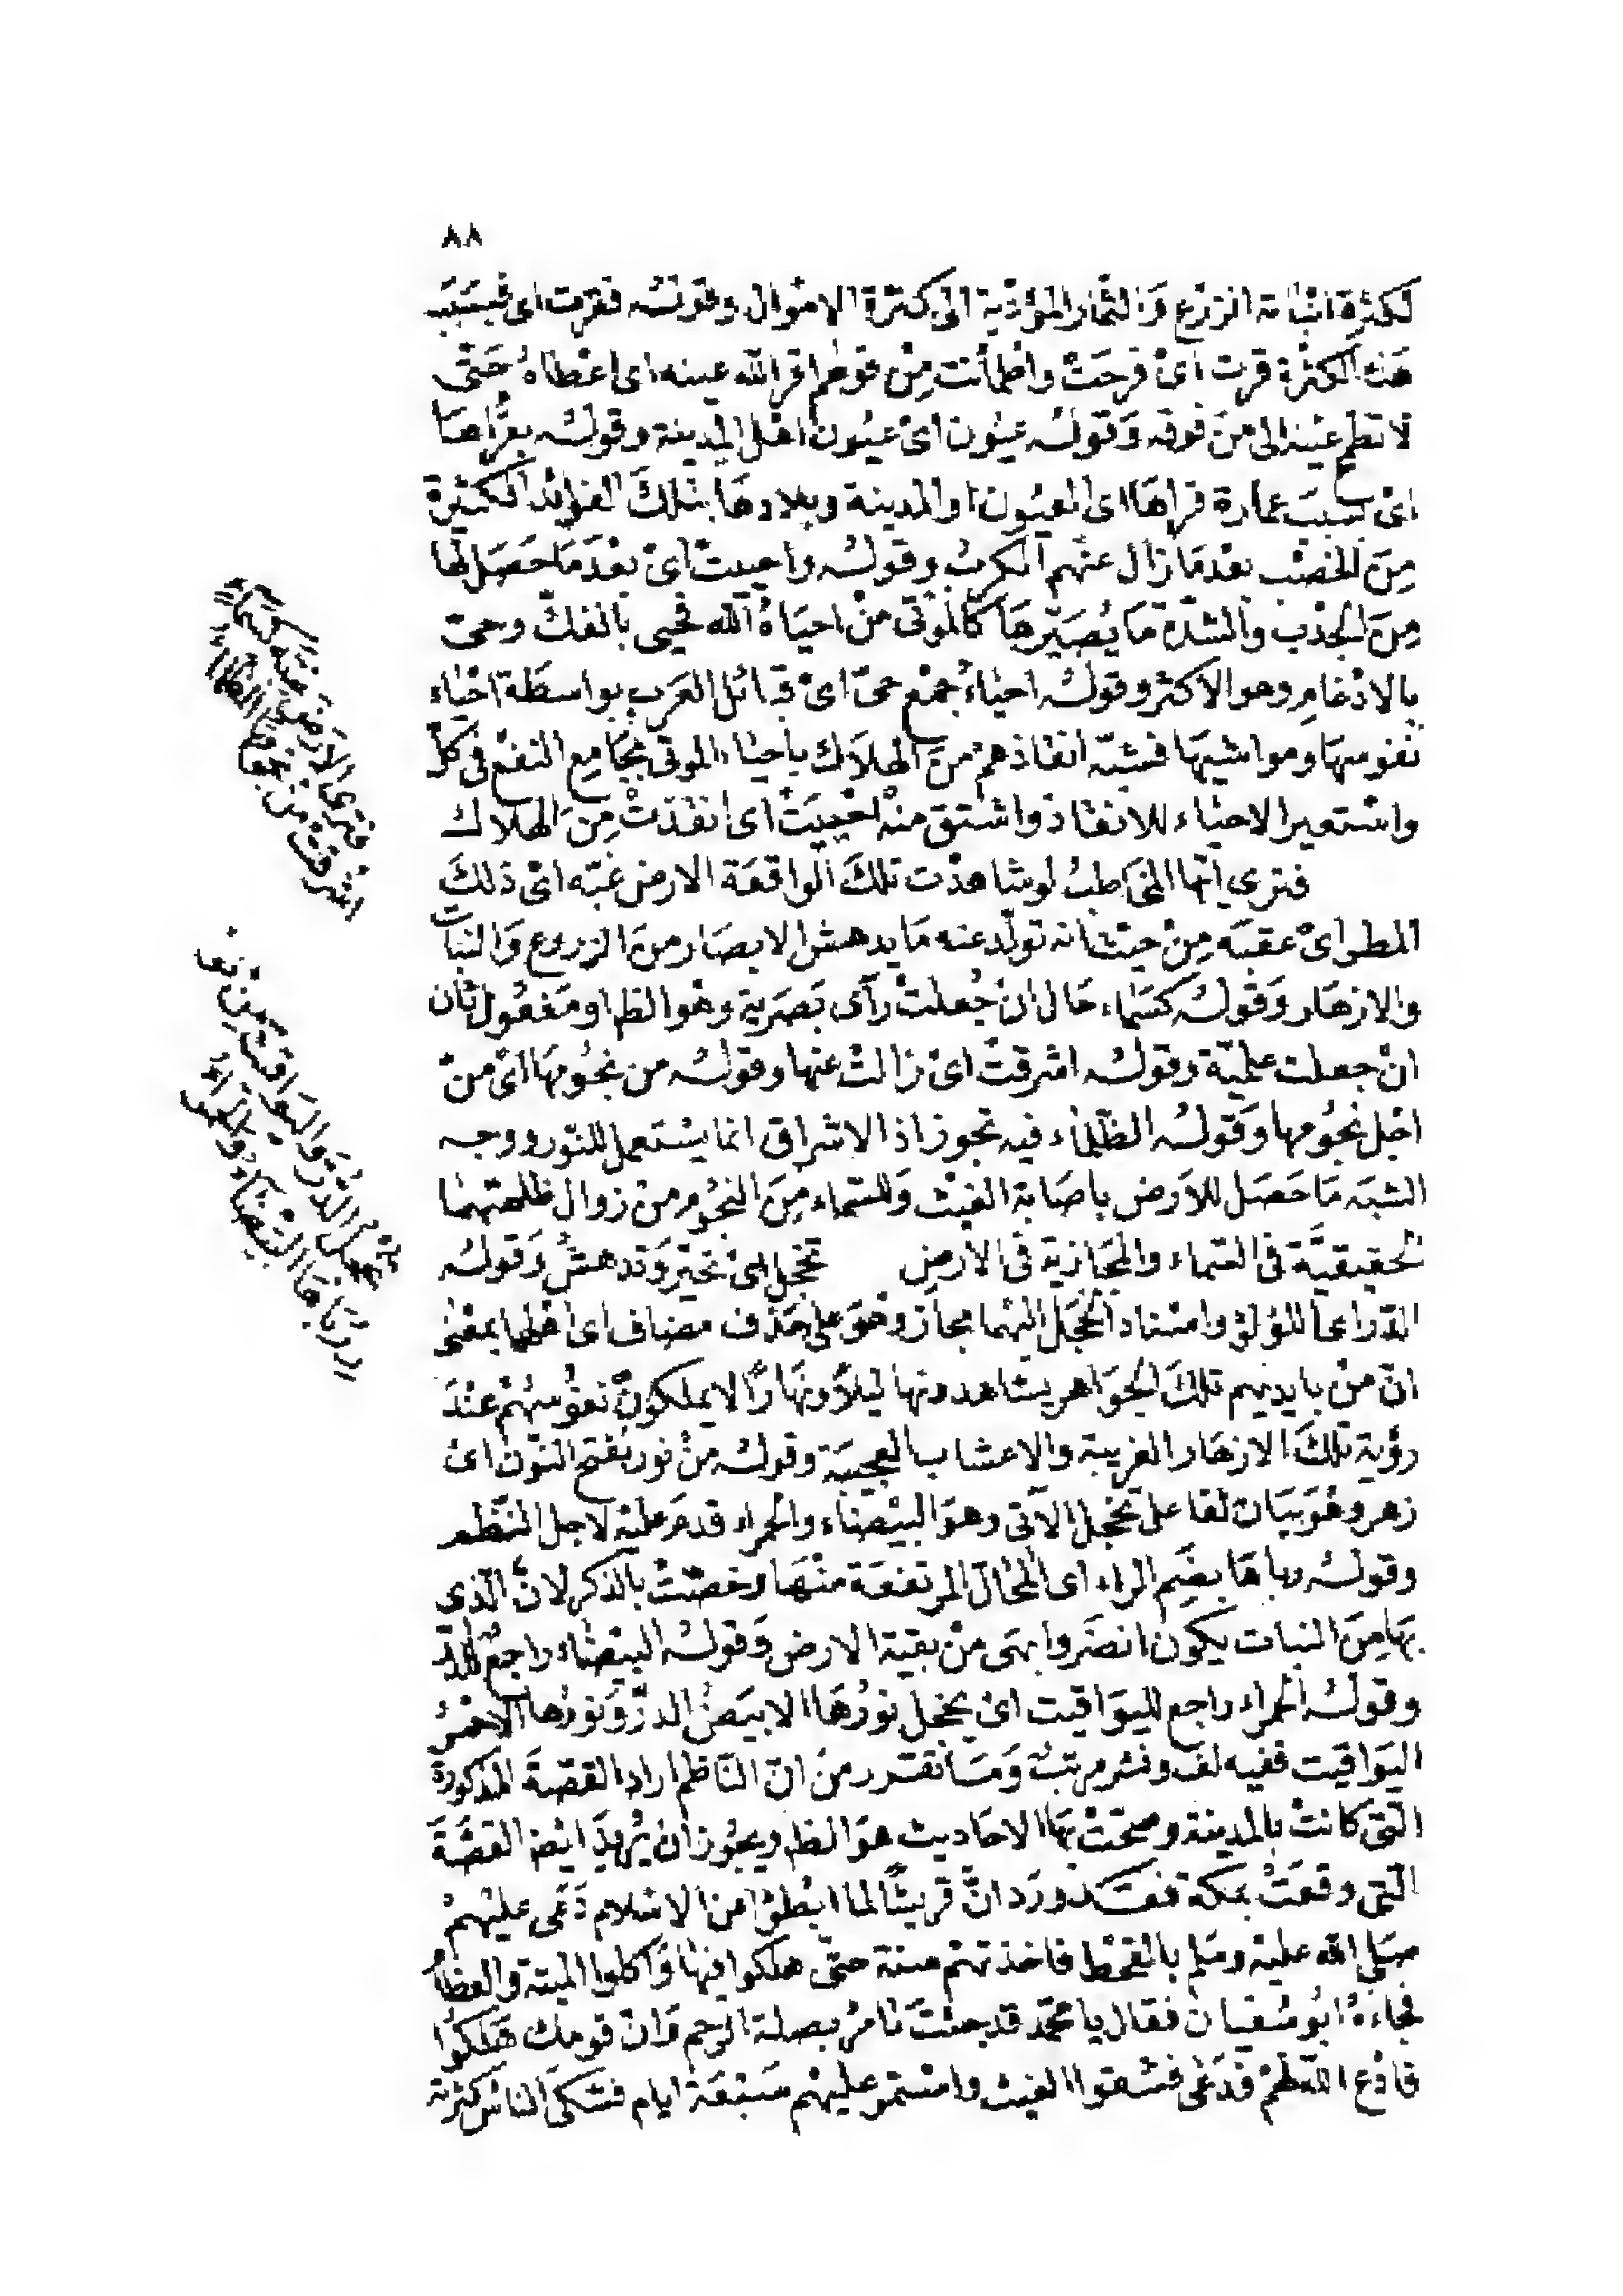 ٨٨
لكثرة انباته الزرع والثمار المؤدية الى كثرة الاموال وقوله فقرت اى فبسبب
هذه الكثرة قرت اى فرحت واطمأنت من قولهم اقر الله عينه اى اعطاه حتى
لا تطمح عينه الى من فوقه وقوله عيون اى عيون اهل المدينة وقوله بقراها
اى بسبب عمارة قراها اى العيون او المدينة وبلادها بتلك الفوائد الكثيرة
من الخصب بعد ما زال عنهم الكرب وقوله واحييت اى بعد ما حصل لها
من الجدب والشدة ما يصيرها كالموتى من احياه الله فحيى بالفك وحى
بالادغام وهو الاكثر وقوله احياء جمع حى اى قبائل العرب بواسطة احياء
نفوسها ومواشيها فشبه انقاذهم من الهلاك باحياء الموتى بجامع النفع فى كل
واستعير الاحياء للانقاذ واشتق منه احييت اى انقذت من الهلاك
فترى ايها المخاطب لو شاهدت تلك الواقعة الارض غبه اى ذلك
المطر اى عقبه من حيث انه تولد عنه ما يدهش الابصار من الزروع والنبات
والازهار وقوله كسماء حال ان جعلت رأى بصرية وهو الظ او مفعول ثان
ان جعلت علمية وقوله اشرقت اى زالت عنها وقوله من نجومها اى من
اجل نجومها وقوله الظلماء فيه تجوز اذ الاشراق انما يستعمل للنور ووجه
الشبه ما حصل للارض باصابة الغيث وللسماء من النجوم من زوال ظلمتهما
الحقيقية فى السماء والمجازية فى الارض تخجل اى تحير وتدهش وقوله
الدر اى اللؤلؤ واسناد الخجل اليهما مجاز وهو على حذف مضاف اى اهلها بمعنى
ان من بايديهم تلك الجواهر يشاهدونها ليلا ونهارا لا يملكون نفوسهم عند
رؤية تلك الازهار الغريبة والاعشاب العجيبة وقوله من نور بفتح النون اى
زهر وهو بيان لفاعل تخجل الآتى وهو البيضاء والحمراء قدم عليه لاجل النظم
وقوله رباها بضم الراء اى المحال المرتفعة منها وخصت بالذكر لان الذى
بها من النبات يكون انضر وابهى من بقية الارض وقوله البيضاء راجع للدر
وقوله الحمراء راجع لليواقيت اى يخجل نورها الابيض الدر ونورها الاحمر
اليواقيت ففيه لف ونشر مرتب وما تقرر من ان الناظم اراد القصة المذكورة
التى كانت بالمدينة وصحت بها الاحاديث هو الظ ويجوز ان يريد ايض القصة
التى وقعت بمكة فقد ورد ان قريشا لما ابطؤا عن الاسلام دعى عليهم
صلى الله عليه وسلم بالقحط فاخذتهم سنة حتى هلكوا فيها واكلوا الميتة والعظام
فجاءه ابو سفيان فقال يا محمد قد جئت تامر بصلة الرحم وان قومك هلكوا
فادع الله لهم فدعى فسقوا الغيث واستمر عليهم سبعة ايام فشكى الناس كثرته
فترى الارض غبه كسماء
اشرقت من نجومها الظلماء
تخجل الدر واليواقيت من نو
ر رباها البيضاء والحمراء